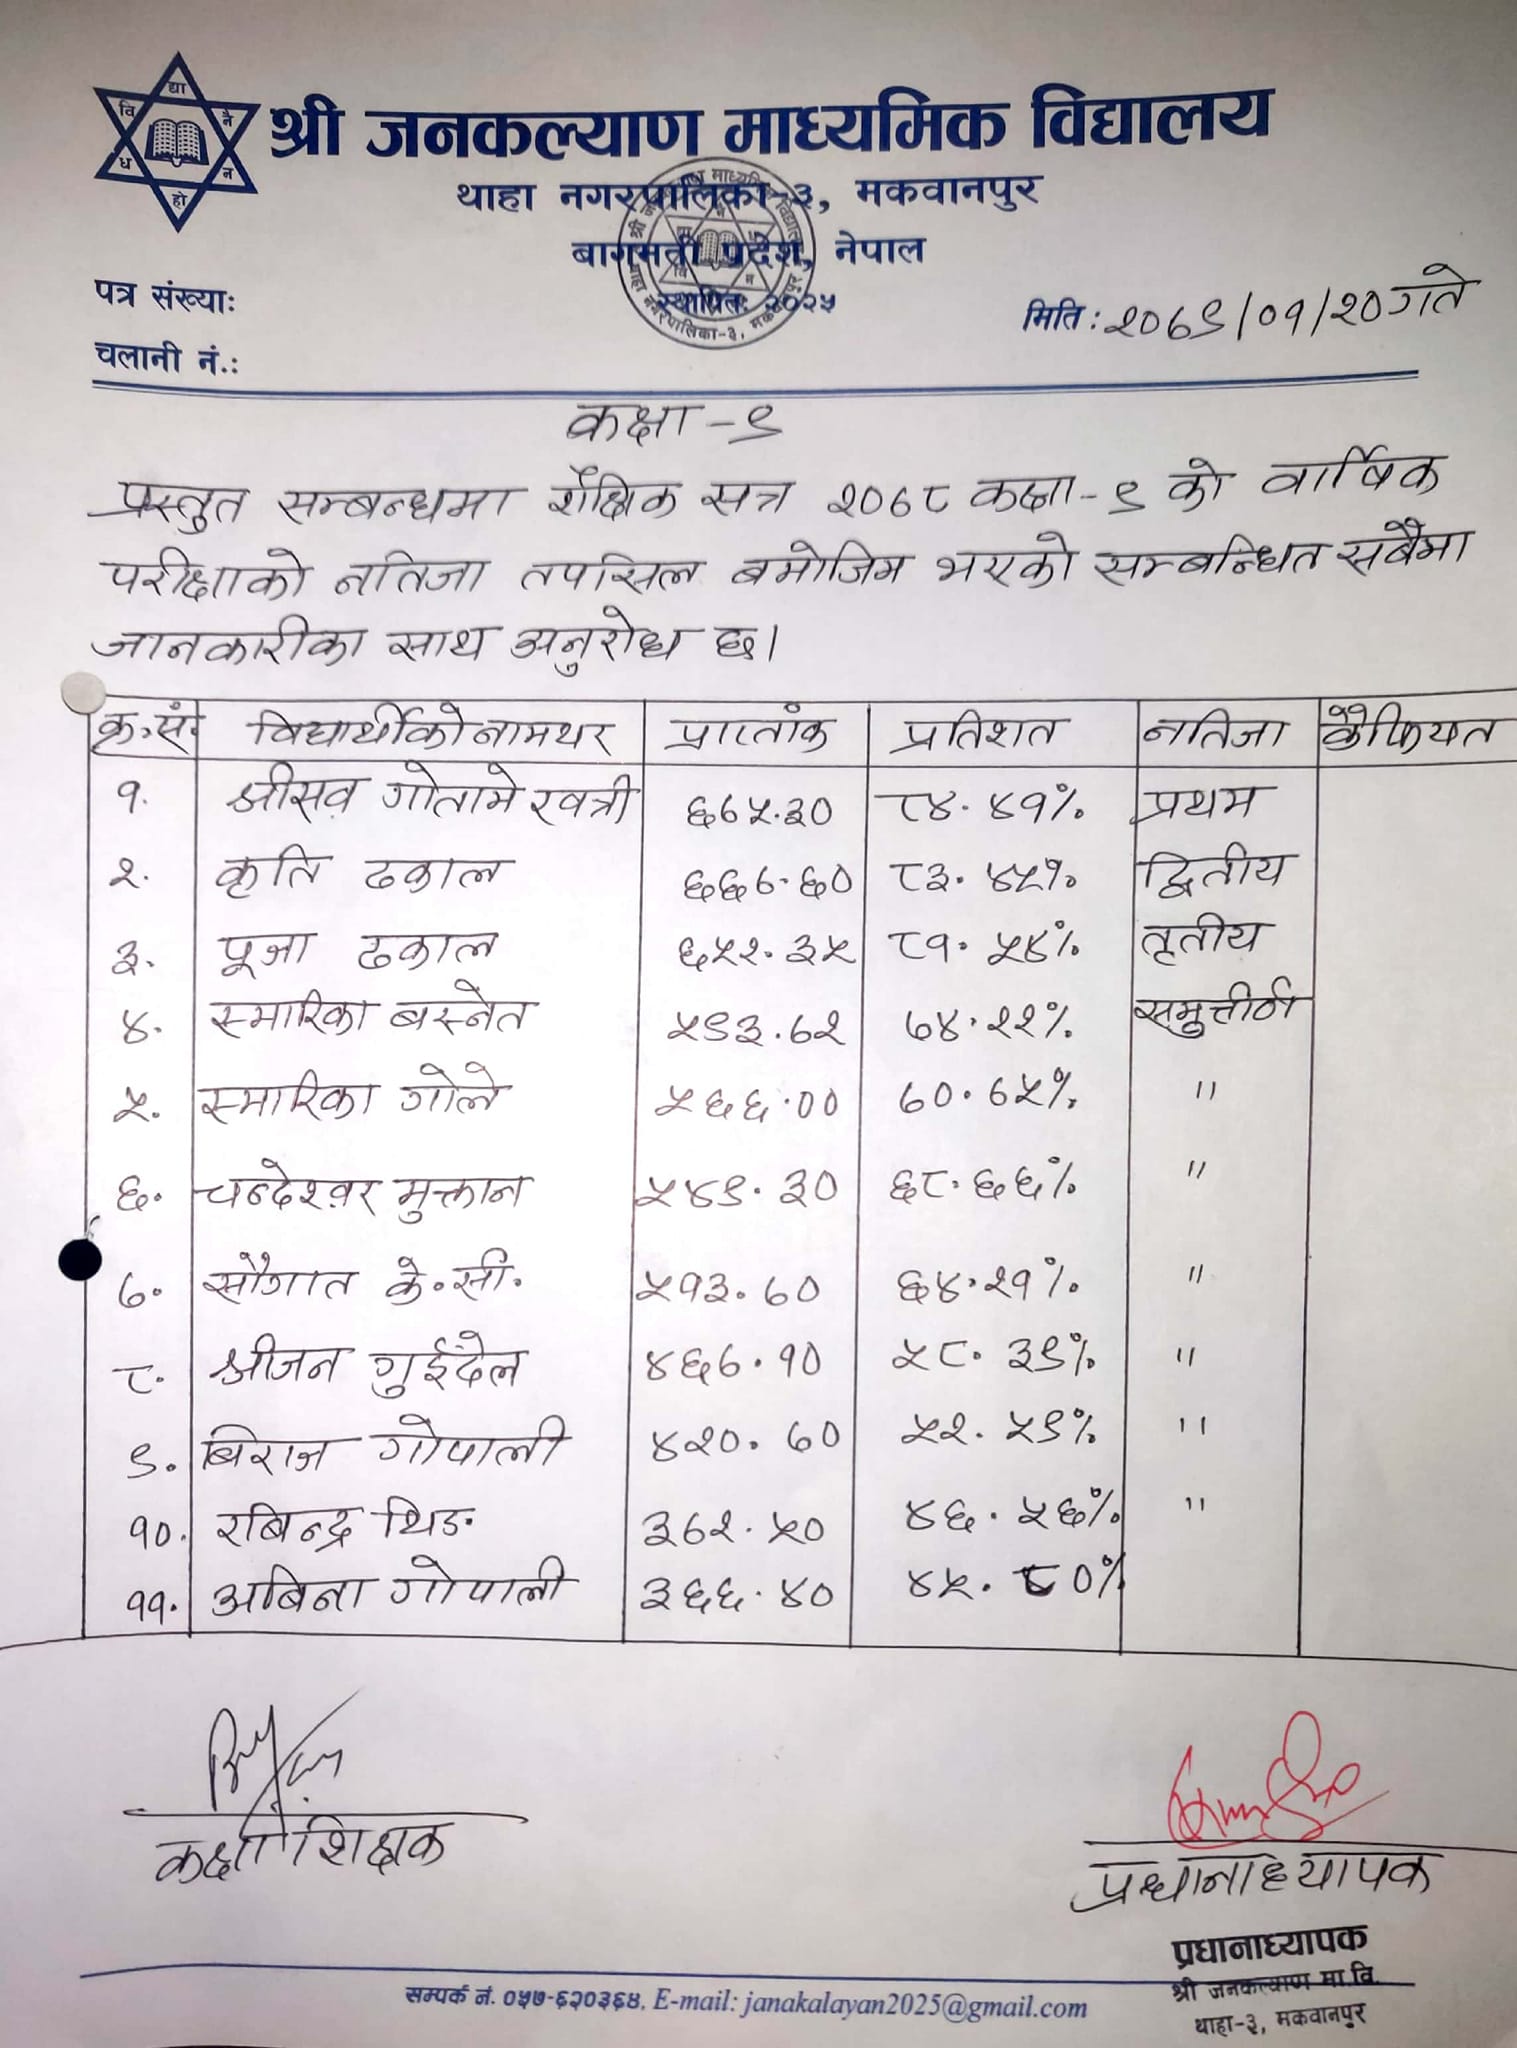 श्री जनकल्याण माध्यमिक विद्यालय
थाहा नगरपालिका-३, मकवानपुर
बागमती प्रदेश, नेपाल
स्थापित: २०२५
पत्र संख्या:
मिति: २०७९/०१/२० गते
चलानी नं.:
कक्षा-९
प्रस्तुत सम्बन्धमा शैक्षिक सत्र २०७८ कक्षा-९ को वार्षिक
परीक्षाको नतिजा तपसिल बमोजिम भएको सम्बन्धित सबैमा
जानकारीका साथ अनुरोध छ।
क्र.सं. विद्यार्थीको नामथर प्राप्तांक प्रतिशत नतिजा कैफियत
१. श्रीसव गोतामे खत्री ६७५.३० ८४.४१% प्रथम
२. कृति ढकाल ६६७.६० ८३.४५% द्वितीय
३. पूजा ढकाल ६५२.३५ ८१.५४% तृतीय
४. स्मारिका बस्नेत ५९३.७२ ७४.२२% समुत्तीर्ण
५. स्मारिका गोले ५६६.०० ७०.७५% "
६. चन्देश्वर मुक्तान ५४९.३० ६८.६६% "
७. सौगात के.सी. ५१३.७० ६४.२१% "
८. श्रीजन गुईदेल ४६७.१० ५८.३९% "
९. बिराज गोपाली ४२०.७० ५२.५९% "
१०. रबिन्द्र थिङ ३७२.५० ४६.५६% "
११. अबिना गोपाली ३६६.४० ४५.८०%
कक्षा शिक्षक
प्रधानाध्यापक
प्रधानाध्यापक
श्री जनकल्याण मा.वि.
थाहा-३, मकवानपुर
सम्पर्क नं. ०५७-६२०३६४, E-mail: janakalayan2025@gmail.com